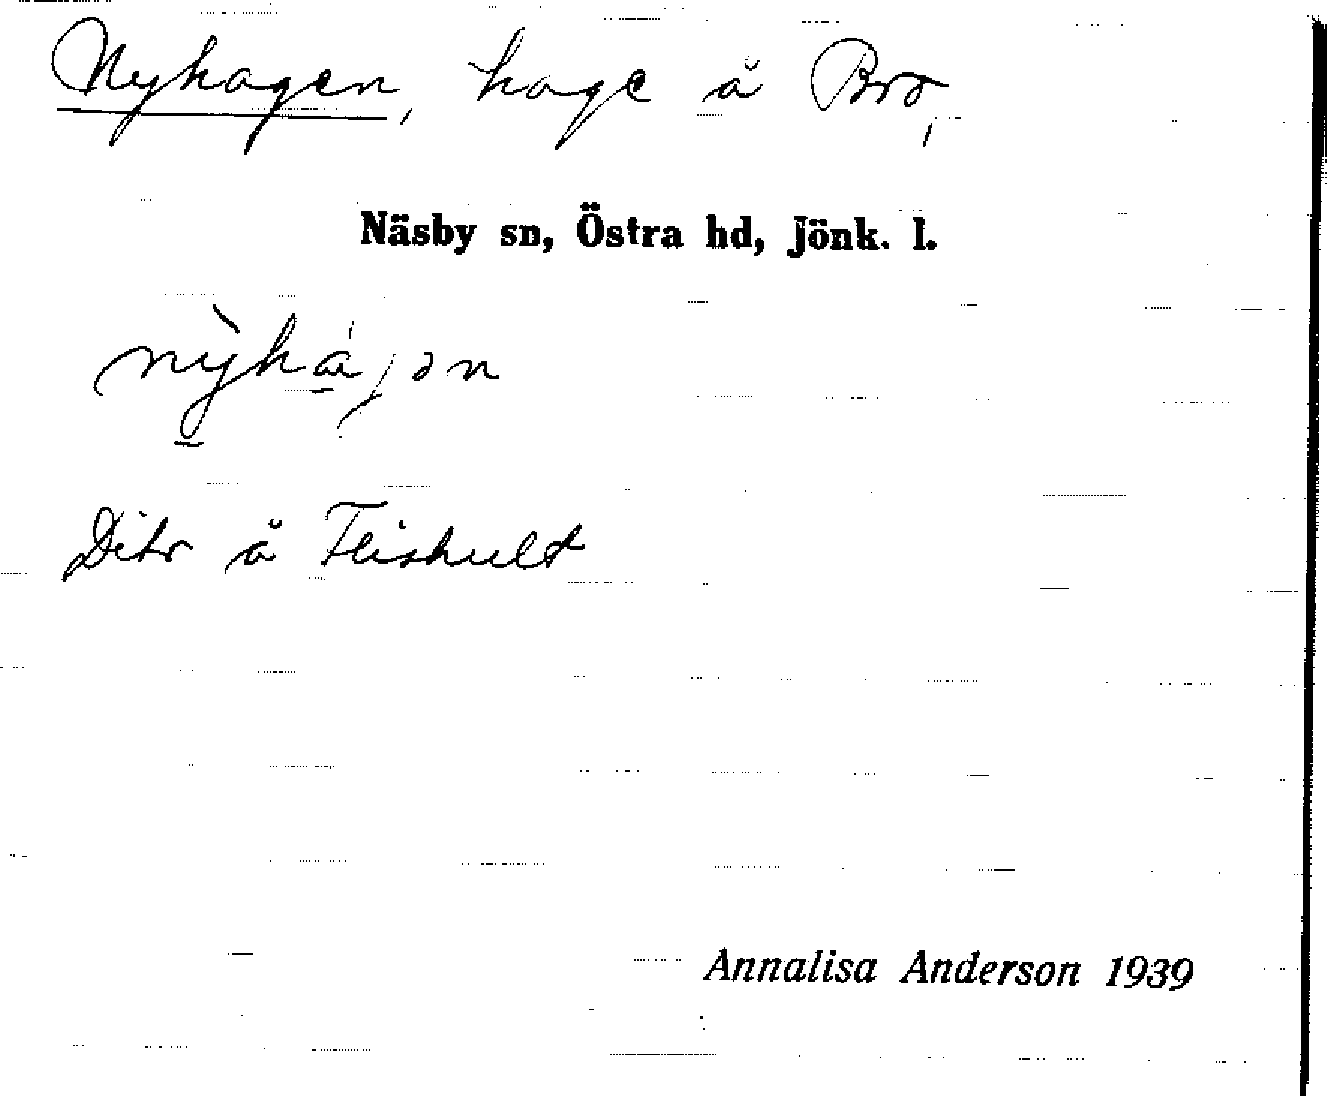 Nyhagen, hage å Bro,
Näsby sn, Östra hd, Jönk. l.
nỳhá̱jən
Dito å Flishult
Annalisa Anderson 1939